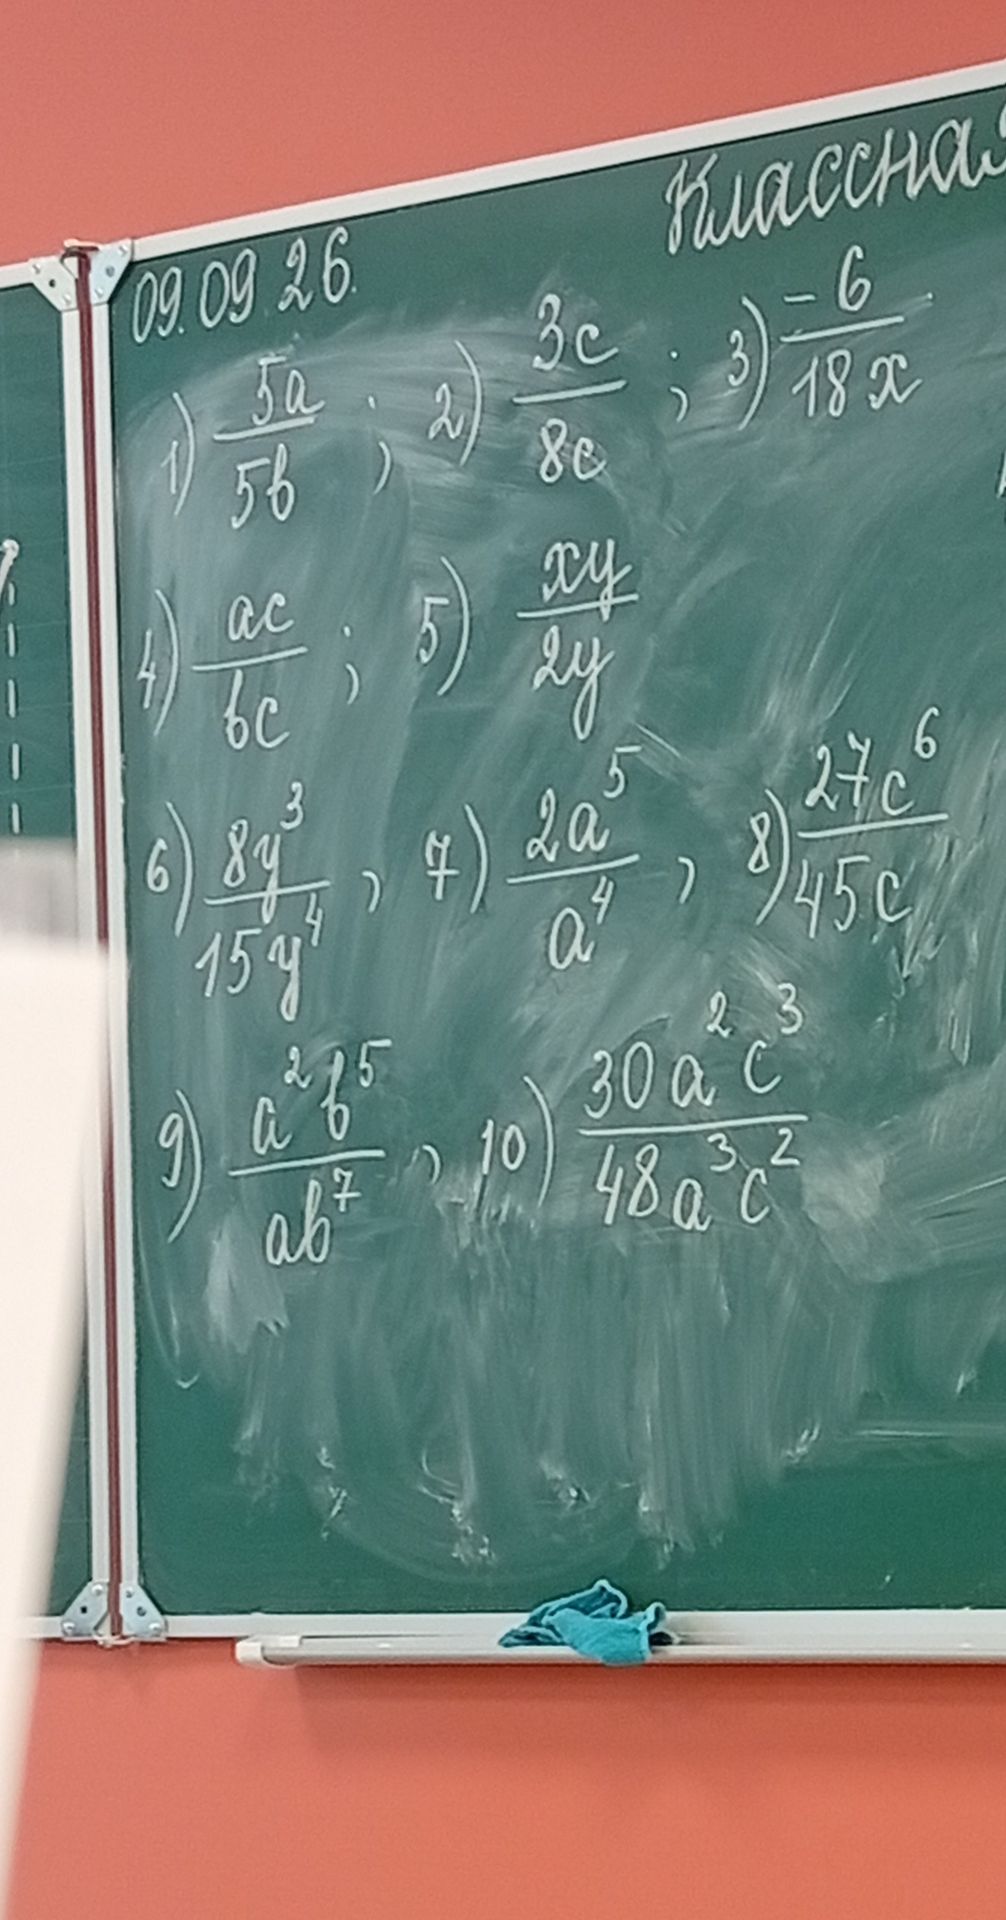 Классная
09.09.26.
1) 5a/5b ; 2) 3c/8c ; 3) -6/18x
4) ac/bc ; 5) xy/2y
6) 8y³/15y⁴ , 7) 2a⁵/a⁴ , 8) 27c⁶/45c
9) a²b⁵/ab⁷ , 10) 30a²c³/48a³c²